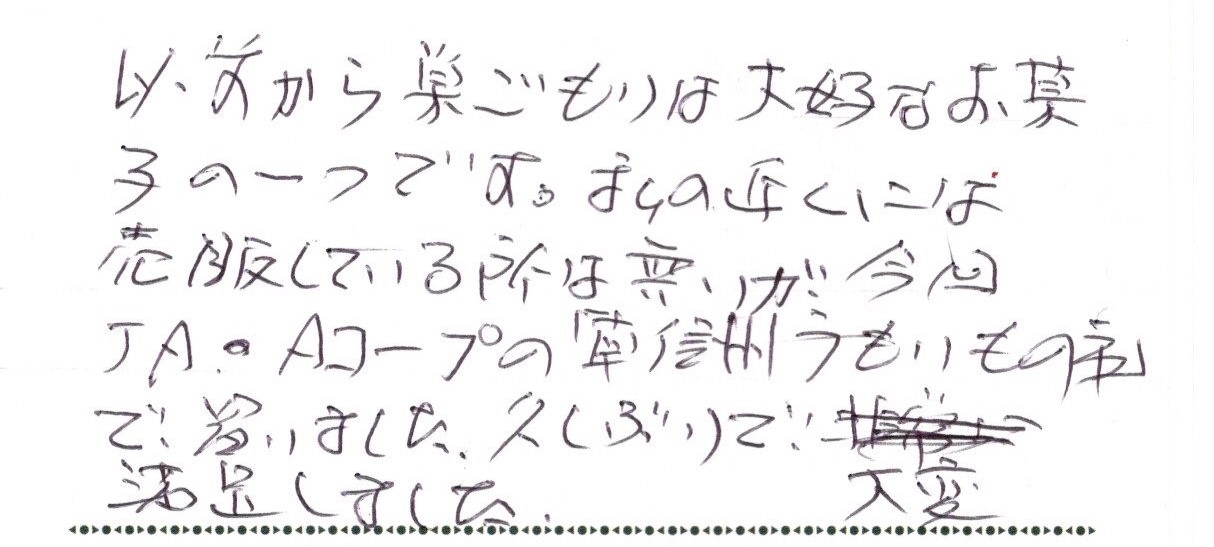 以前から巣ごもりは大好なお菓
子の一つです。私の近くには
売販している所は無いが、今回
JA・Aコープの「南信州うまいもの市」
で買いました、久しぶりで
満足しました. 大変